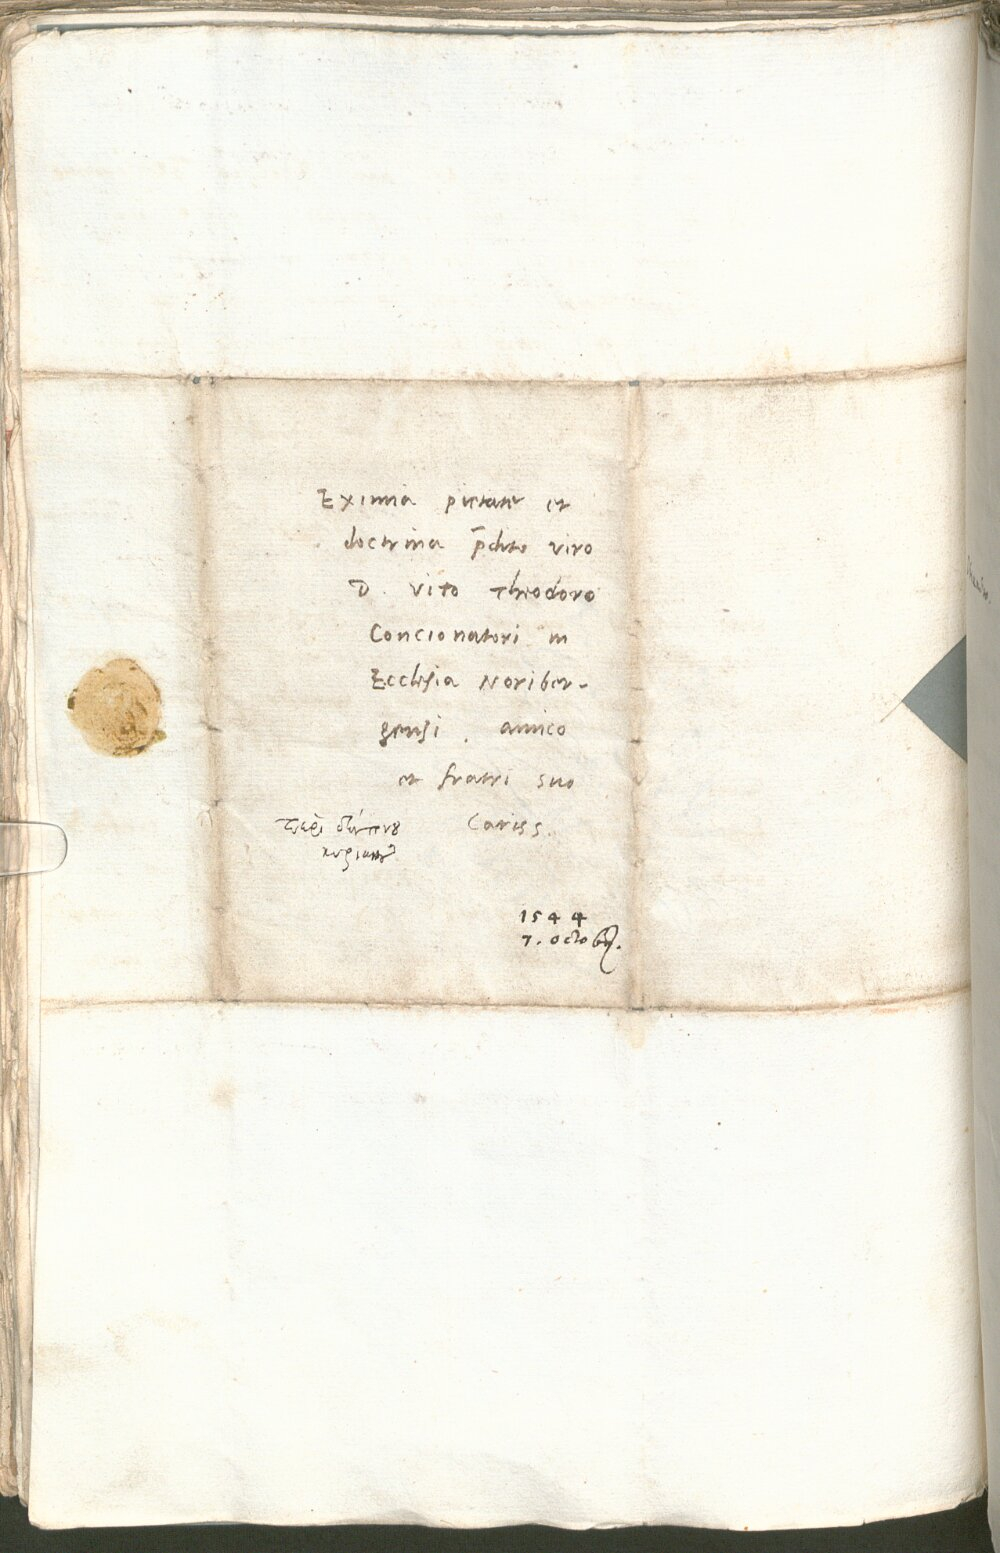 Eximia pietate et
doctrina p̄dito viro
D. Vito Theodoro
Concionatori in
Ecclesia Noriber-
gensi. amico
et fratri suo
Cariss.
περὶ δείπνου
κυριακοῦ
1544
7. Octob.